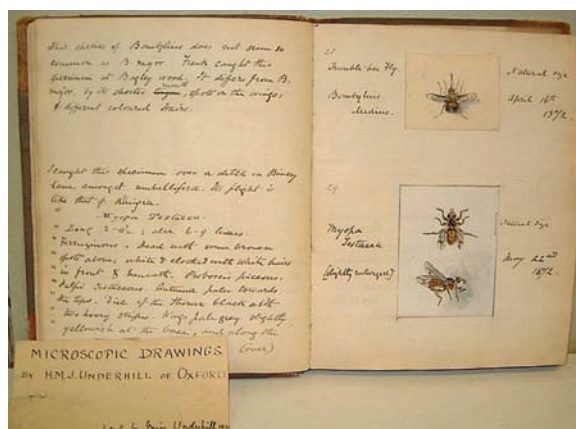 This species of Bombylius does not seem so
common as B. major. Frank caught this
specimen at Bagley wood. It differs from B.
major, by its shorter mouth, spots on the wings,
& different coloured hairs.
I caught this specimen over a ditch in Binsey
Lane, amongst umbelliferæ. Its flight is
like that of
Myopa Testacea.
" Long 3-4½; alar 6-9 lines.
" Ferruginous. Head with some brown
" spots above; white & clothed with white hairs
" in front & beneath. Proboscis piceous.
" Palpi testaceous. Antennæ paler towards
" the tips. Disc of the thorax black with
" two hoary stripes. Wings pale grey slightly
yellowish at the base, and along the
(over)
Humble-bee Fly.
Bombylius
Medius.
Natural size
April 16th
1872.
29
Myopa
Testacea
(slightly enlarged)
Natural size
May 22nd
1872.
MICROSCOPIC DRAWINGS
BY H.M.J. UNDERHILL OF OXFORD
by Miss Underhill